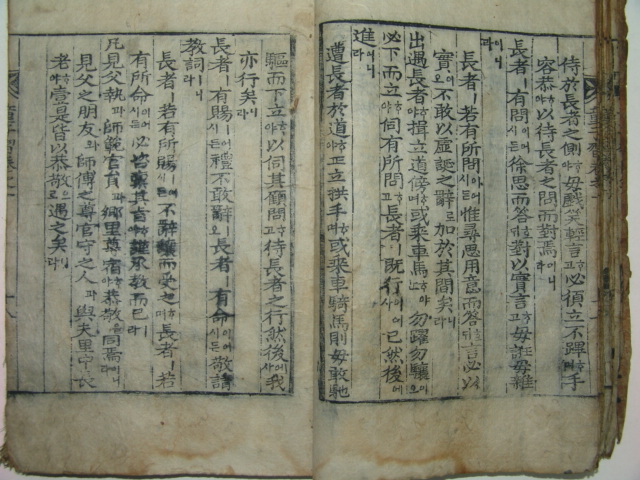 侍於長者之側ᄒᆞ야 毋戱笑輕言ᄒᆞ고 必植立不蹕ᄒᆞ며 手
容恭ᄒᆞ야 以待長者之問而對焉이니라
長者ㅣ 有問이어시든 徐思而答 對以實言ᄒᆞ고 毋誑毋雜
이니라
長者ㅣ 若有所問이어시든 惟尋思用意而答 言必以
實이오 不敢以虛誕之辭로 加於其間矣니라
出遇長者ᄒᆞ야 揖立道傍ᄒᆞ며 或乘車馬ᄒᆞ야 勿躍勿驤이오
必下而立ᄒᆞ야 伺有所問ᄒᆞ고 長者ㅣ 旣行 已然後에
進이니라
遭長者於道ᄒᆞ야 正立拱手ᄒᆞ며 或乘車騎馬則毋敢馳
驅而下立ᄒᆞ야 以伺其顧問ᄒᆞ고 待長者之行然後에사 我
亦行矣니라
長者ㅣ 有賜ㅣ어시든 禮不敢辭오 長者ㅣ 有命이어시든 敬請
敎詞ㅣ니라
長者ㅣ 若有所賜ㅣ어시든 不辭驤而受之며 長者ㅣ 若
有所命이어시든 必 其言 謹承敎而已라
凡見父執과 師範官員과 鄕里尊宿ᄒᆞ야 恭敬 同焉이니라
見父之朋友와 師傅之尊官守之人과 與夫里中長
老ᄒᆞ야 壹是皆以恭敬으로 遇之矣니라